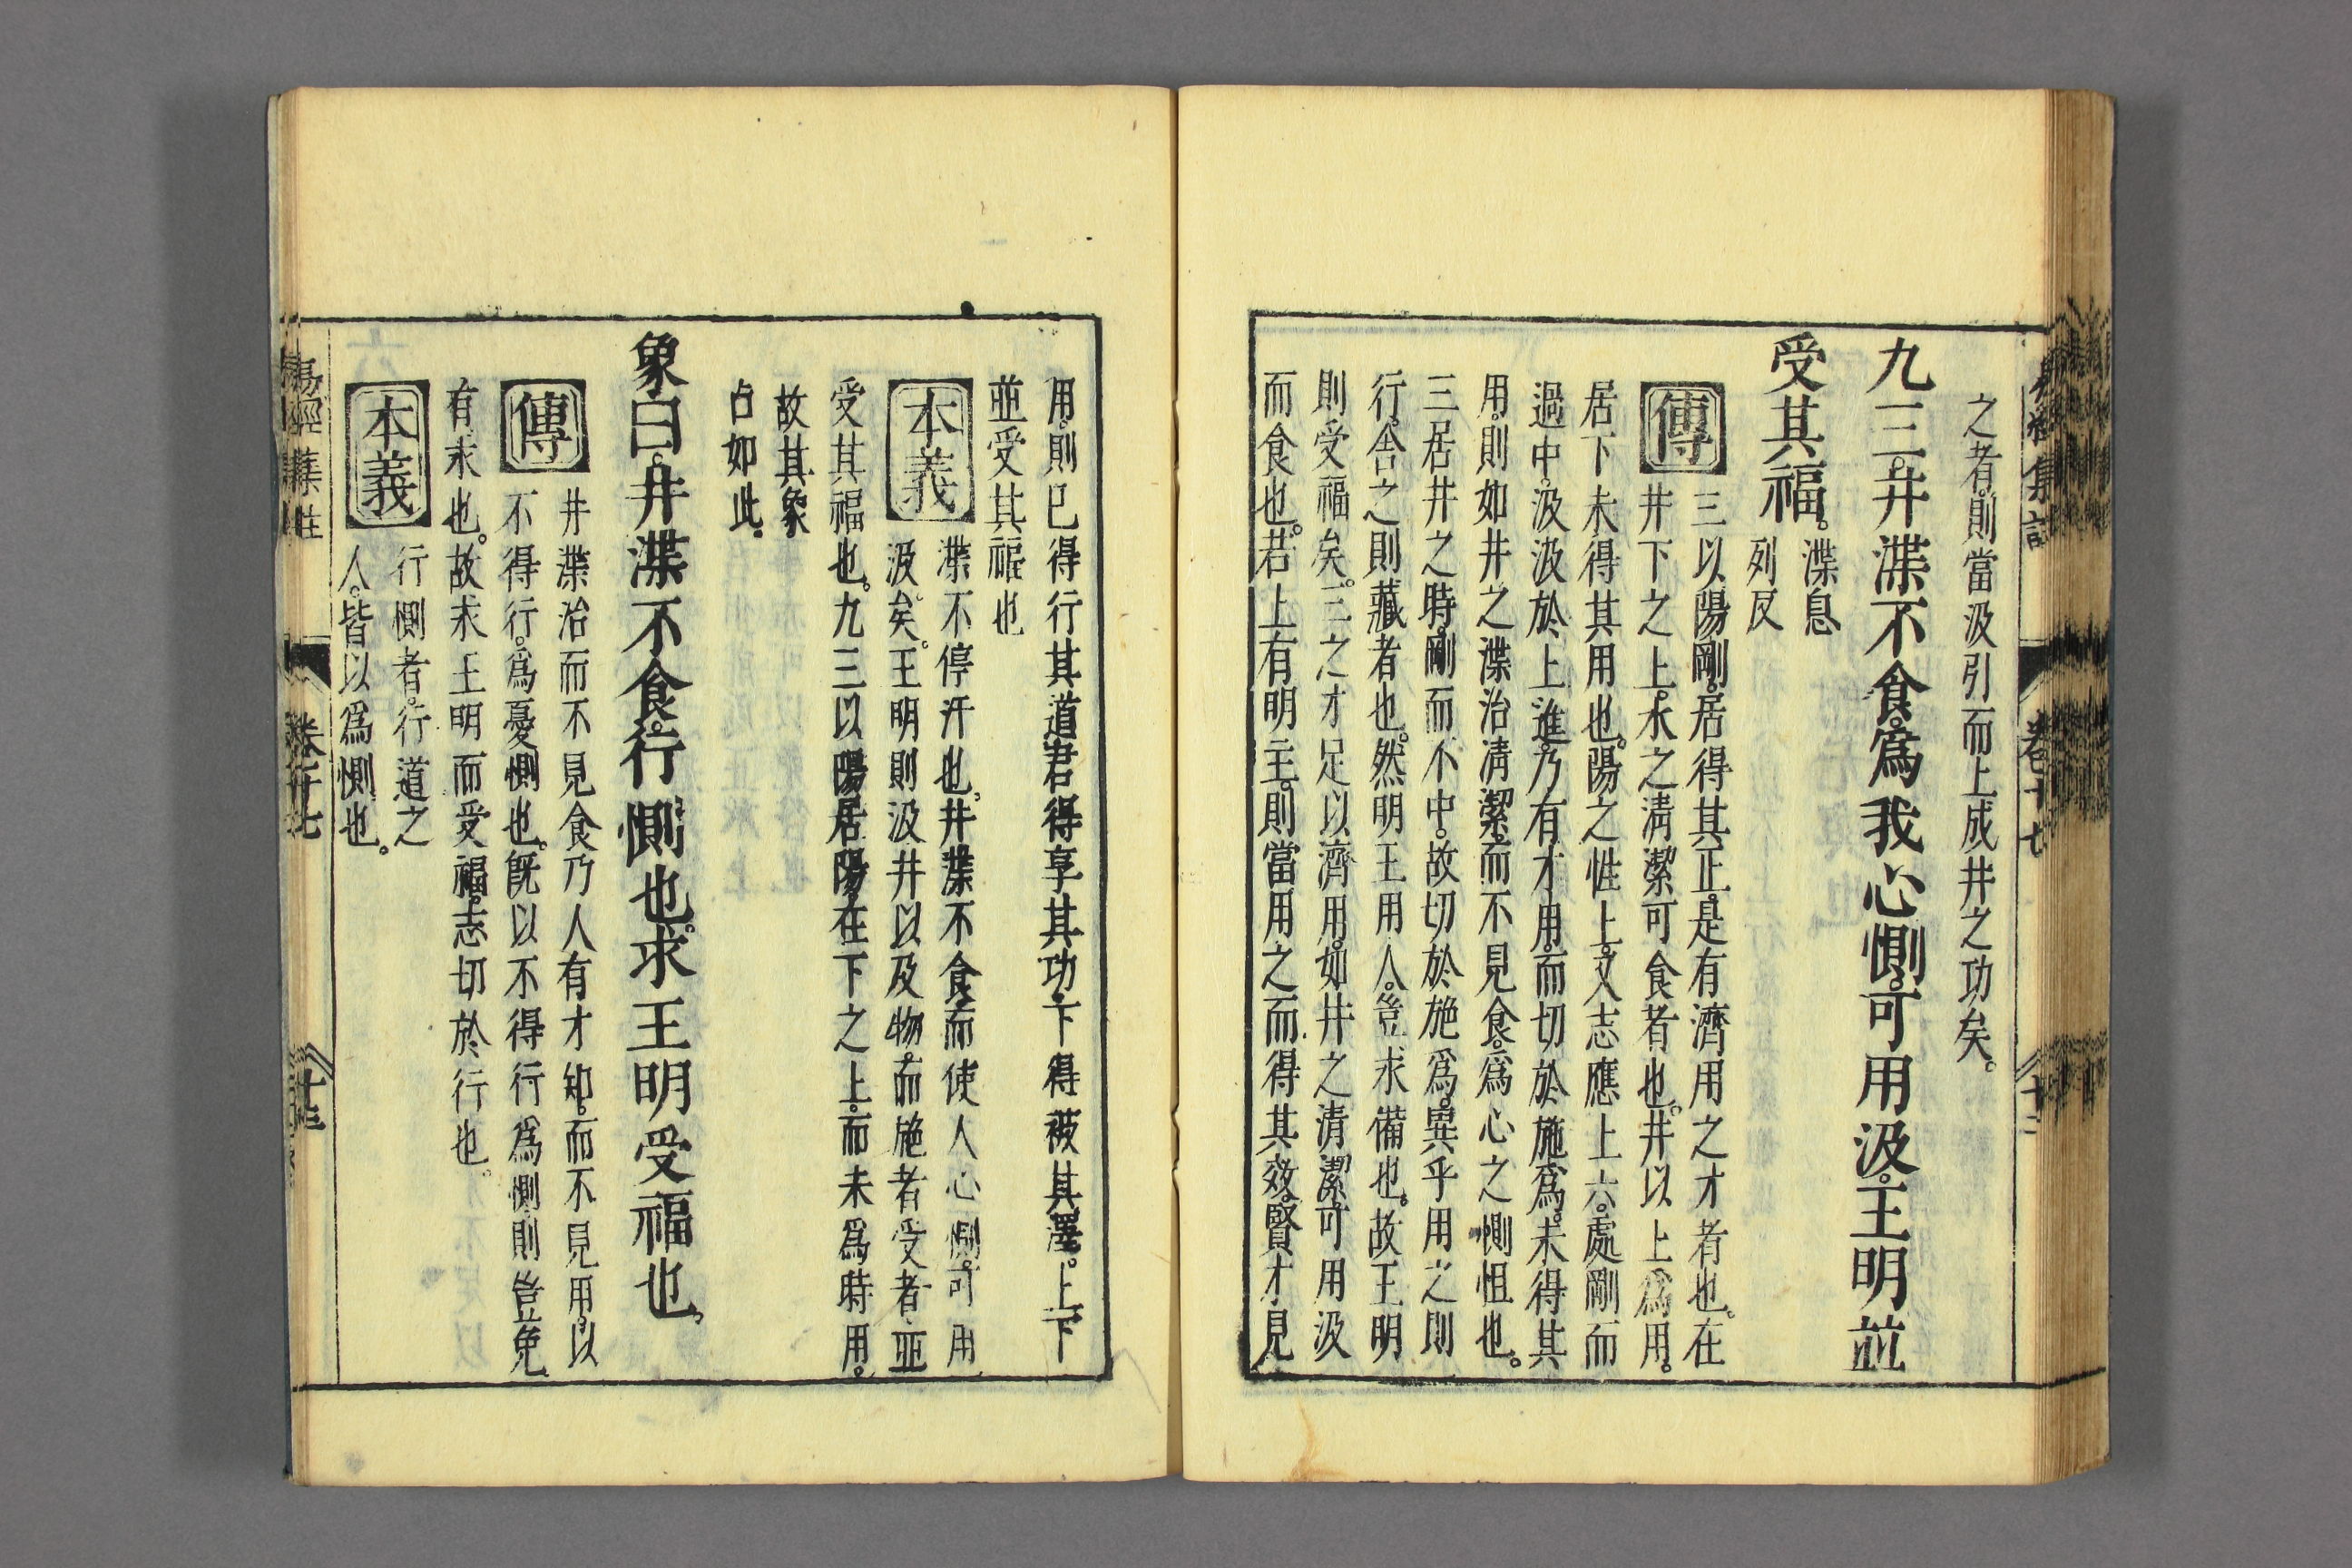 之者則當汲引而上成井之功矣。
九三。井渫不食。爲我心惻。可用汲。王明並
受其福。
渫息
列反
傳
三以陽剛。居得其正。是有濟用之才者也。在
井下之上。水之清潔可食者也。井以上爲用。
居下未得其用也。陽之性上。又志應上六。處剛而
過中。汲汲於上進。乃有才用。而切於施爲。未得其
用。則如井之渫治清潔。而不見食。爲心之惻怛也。
三居井之時。剛而不中。故切於施爲。異乎用之則
行。舍之則藏者也。然明王用人。豈求備也。故王明
則受福矣。三之才足以濟用。如井之清潔。可用汲
而食也。若上有明主。則當用之而得其效。賢才見
用。則已得行其道。君得享其功。下得被其澤。上下
並受其福也
本義
渫不停汙也。井渫不食。而使人心惻。可用
汲矣。王明則汲井以及物。而施者受者並
受其福也。九三以陽居陽。在下之上。而未爲時用。
故其象
占如此。
象曰。井渫不食。行惻也。求王明受福也。
傳
井渫治而不見食乃人有才知。而不見用。以
不得行。爲憂惻也。旣以不得行爲惻。則豈免
有求也。故求王明而受福。志切於行也。
本義
行惻者。行道之
人。皆以爲惻也。
易經集註 卷十七 十三